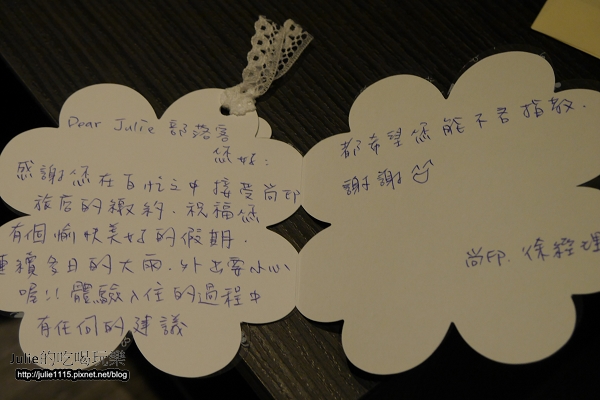 Dear Julie 部落客
您好:
感謝您在百忙之中接受尚印
旅店的邀約.祝福您
有個愉快美好的假期.
連續多日的大雨.外出要小心
喔!! 體驗入住的過程中
有任何的建議
都希望您能不吝指教.
謝謝
尚印.徐經理
Julie的吃喝玩樂
http://julie1115.pixnet.net/blog